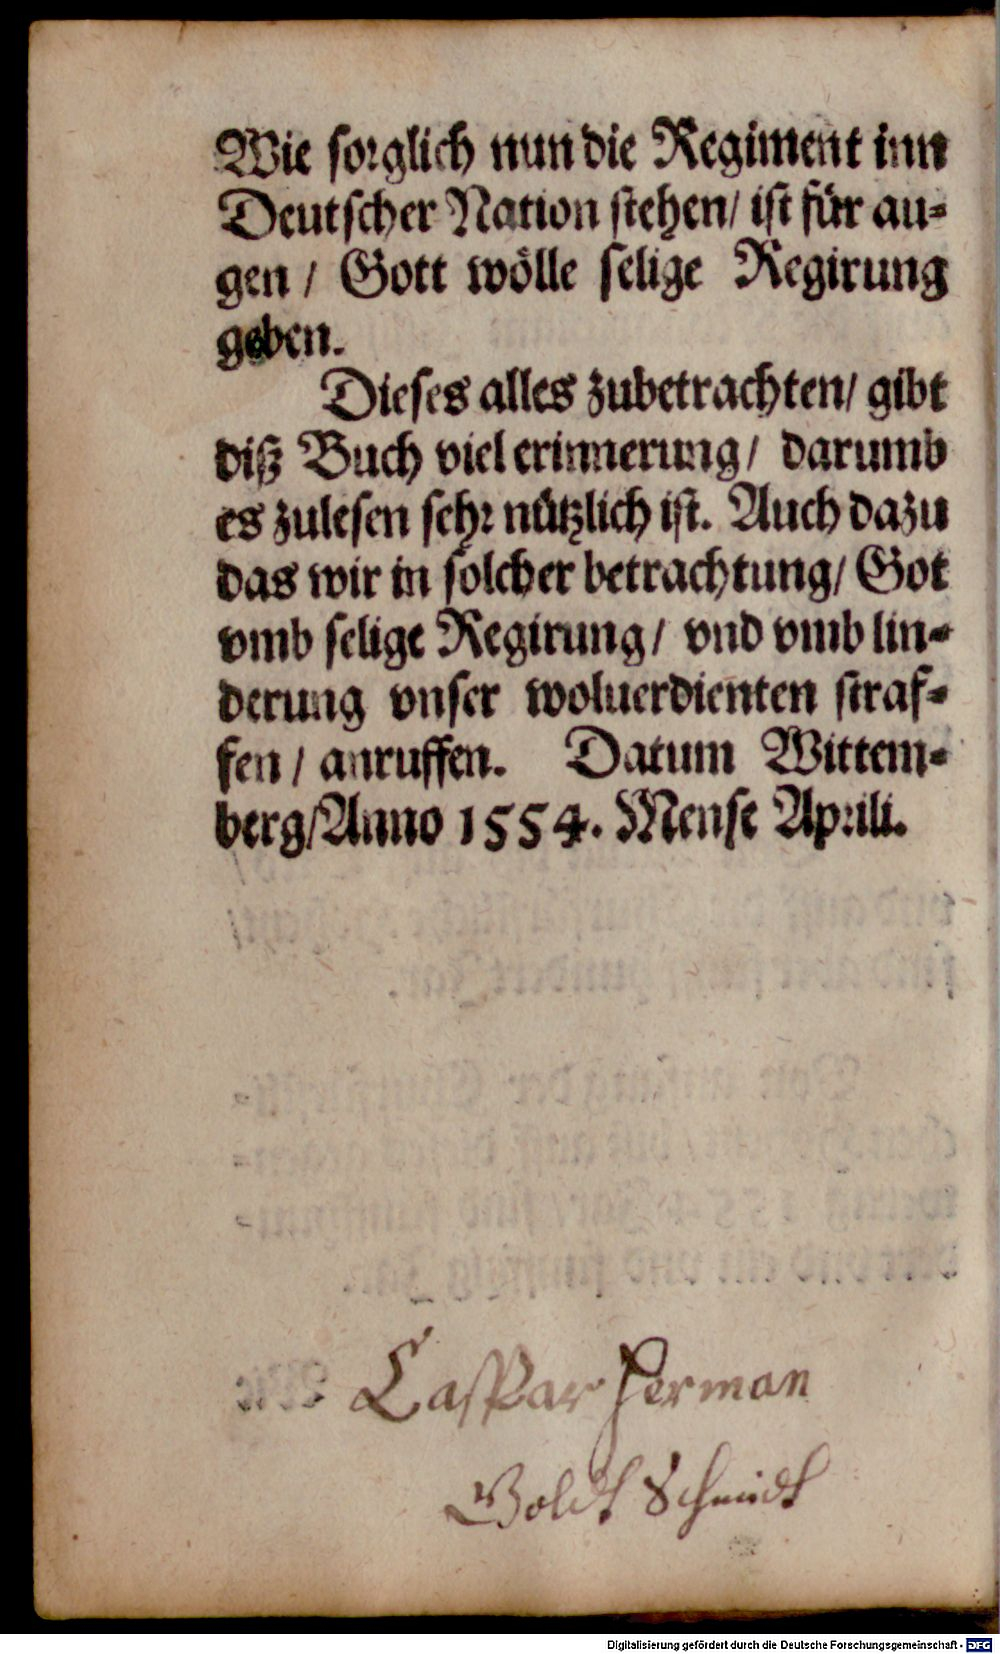 Wie sorglich nun die Regiment inn
Deutscher Nation stehen/ ist für au-
gen / Gott wölle selige Regirung
geben.
Dieses alles zubetrachten/ gibt
diß Buch viel erinnerung/ darumb
es zulesen sehr nützlich ist. Auch dazu
das wir in solcher betrachtung/ Got
vmb selige Regirung/ vnd vmb lin-
derung vnser woluerdienten straf-
fen / anruffen. Datum Wittem-
berg/Anno 1554. Mense Aprili.
Caspar Herman
Goldt Schmidt
Digitalisierung gefördert durch die Deutsche Forschungsgemeinschaft - DFG